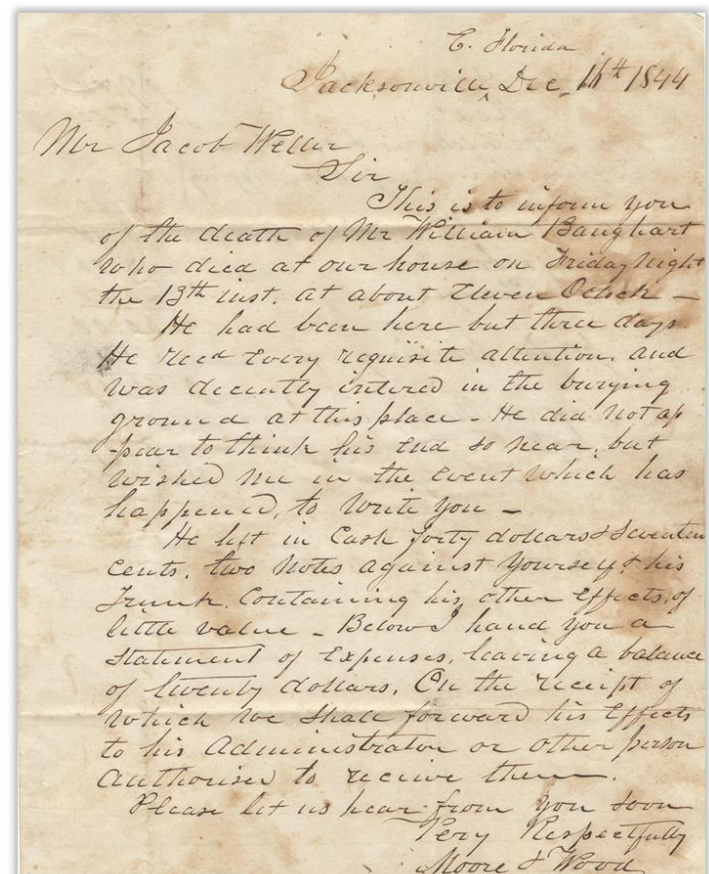 E. Florida
Jacksonville, Dec, 16th 1844
Mr Jacob Weller
Sir
This is to inform you
of the death of Mr William Banghart
who died at our house on Friday Night
the 13th inst. at about Eleven Oclock -
He had been here but three days.
He recd Every requisite attention. and
was decently intered in the burying
ground at this place - He did not ap
pear to think his End so near, but
wished me in the Event which has
happened, to write you -
He left in Cash forty dollars & Seventeen
Cents. two Notes against Yourself & his
Trunk. Containing his other Effects, of
little value - Below I hand you a
Statement of Expenses, leaving a balance
of twenty dollars. On the receipt of
which we shall forward his Effects
to his Administrator or other person
Authorised to receive them.
Please let us hear from you soon
Very Respectfully
Moore & Wood